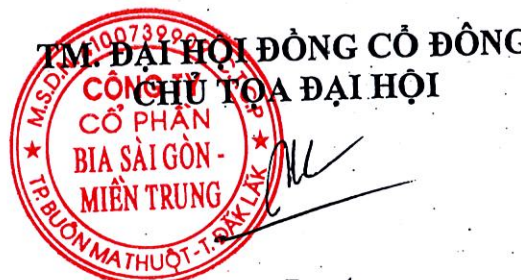 TM. ĐẠI HỘI ĐỒNG CỔ ĐÔNG
CHỦ TỌA ĐẠI HỘI
CÔNG TY
CỔ PHẦN
BIA SÀI GÒN -
MIỀN TRUNG
TP. BUÔN MA THUỘT - T. ĐĂK LĂK